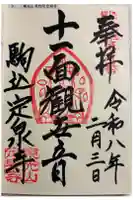 奉拝
令和八年
一月三日
十一面観世音
駒込定泉寺